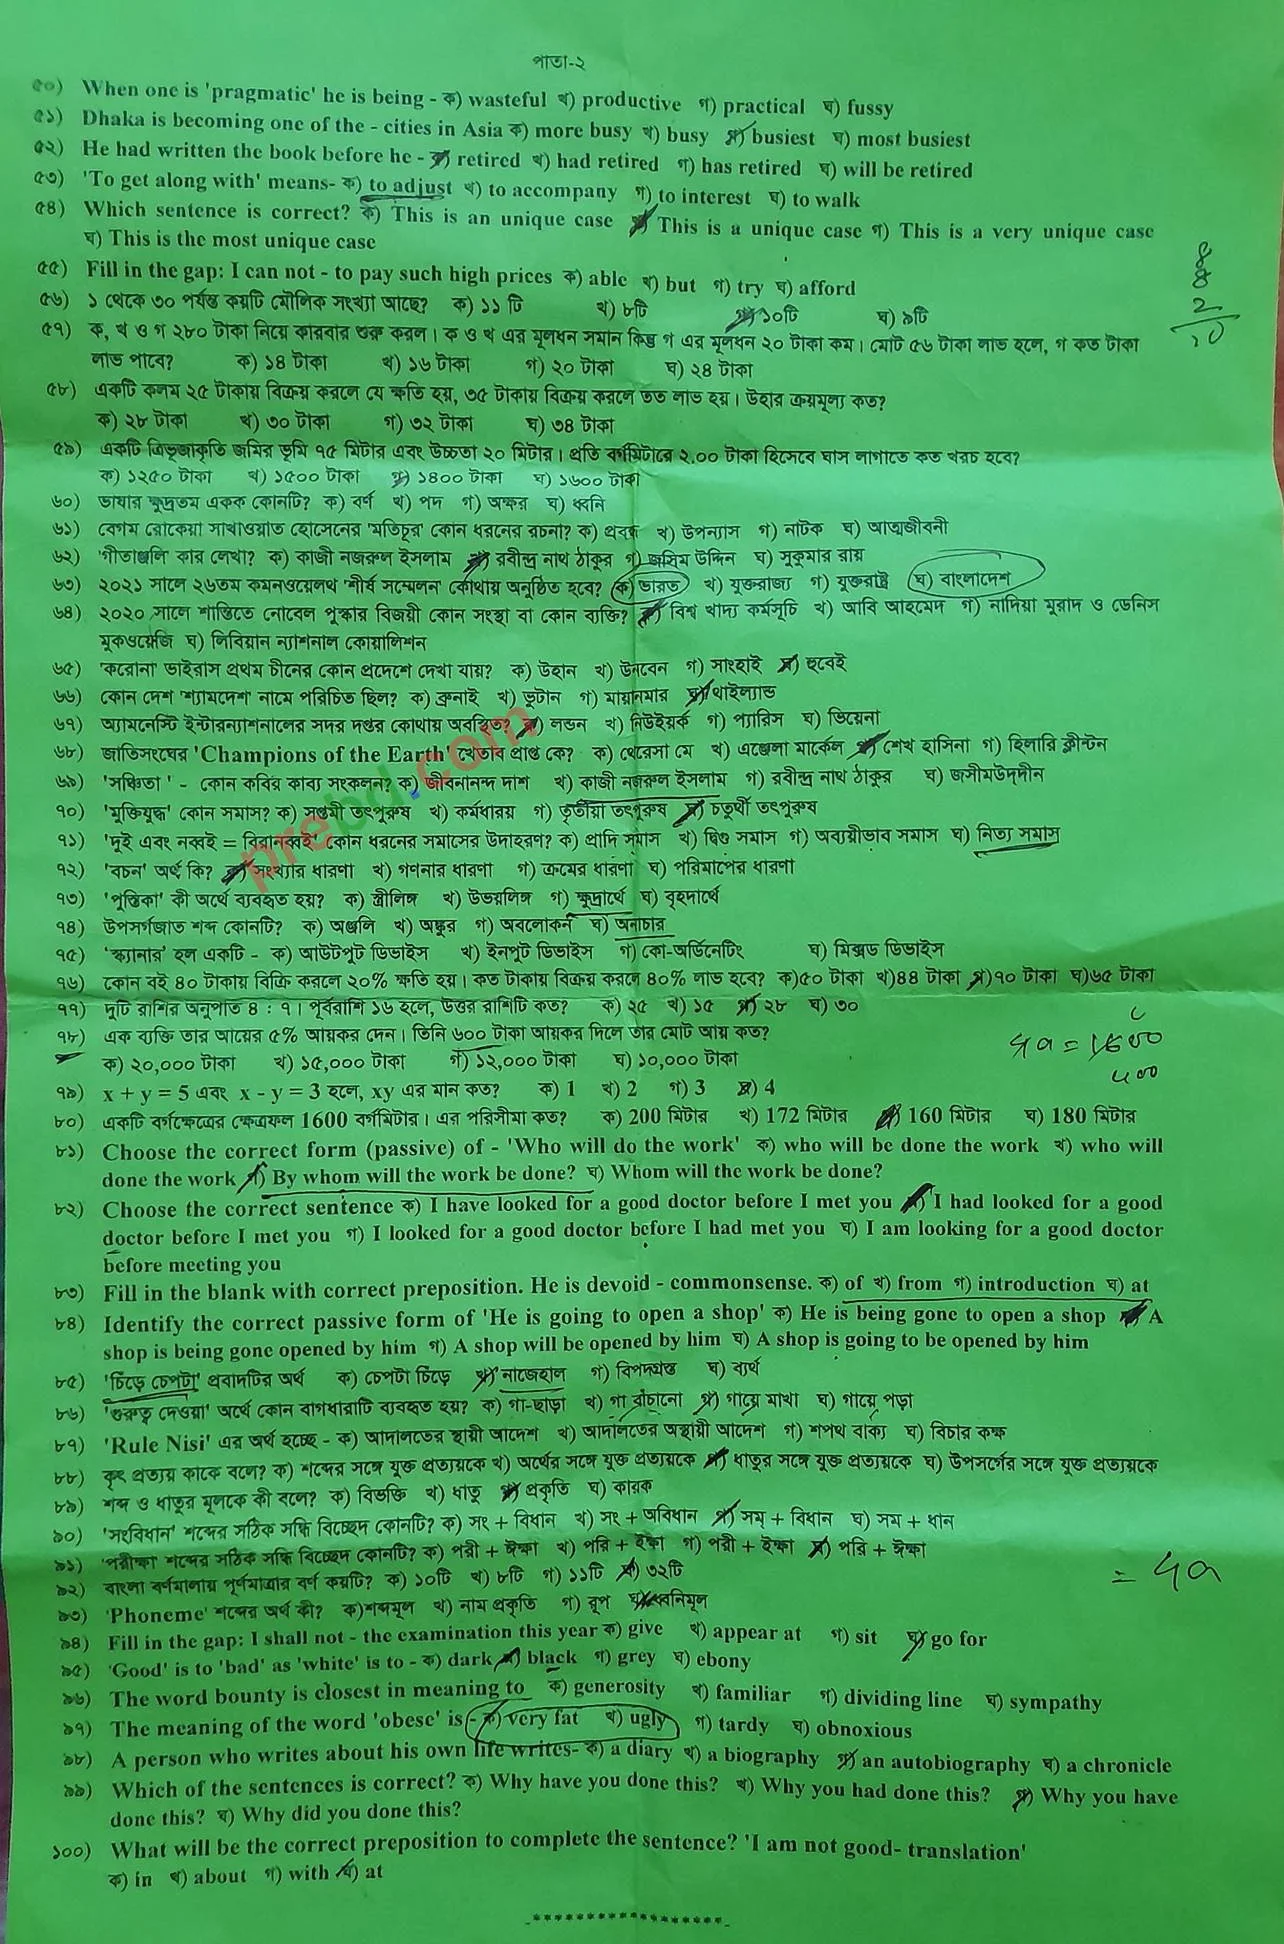 পাতা-২
৫০) When one is 'pragmatic' he is being - ক) wasteful খ) productive গ) practical ঘ) fussy
৫১) Dhaka is becoming one of the - cities in Asia ক) more busy খ) busy গ) busiest ঘ) most busiest
৫২) He had written the book before he - ক) retired খ) had retired গ) has retired ঘ) will be retired
৫৩) 'To get along with' means- ক) to adjust খ) to accompany গ) to interest ঘ) to walk
৫৪) Which sentence is correct? ক) This is an unique case খ) This is a unique case গ) This is a very unique case
ঘ) This is the most unique case
৫৫) Fill in the gap: I can not - to pay such high prices ক) able খ) but গ) try ঘ) afford
৫৬) ১ থেকে ৩০ পর্যন্ত কয়টি মৌলিক সংখ্যা আছে? ক) ১১ টি খ) ৮টি গ) ১০টি ঘ) ৯টি
৫৭) ক, খ ও গ ২৮০ টাকা নিয়ে কারবার শুরু করল। ক ও খ এর মূলধন সমান কিন্তু গ এর মূলধন ২০ টাকা কম। মোট ৫৬ টাকা লাভ হলে, গ কত টাকা
লাভ পাবে? ক) ১৪ টাকা খ) ১৬ টাকা গ) ২০ টাকা ঘ) ২৪ টাকা
৫৮) একটি কলম ২৫ টাকায় বিক্রয় করলে যে ক্ষতি হয়, ৩৫ টাকায় বিক্রয় করলে তত লাভ হয়। উহার ক্রয়মূল্য কত?
ক) ২৮ টাকা খ) ৩০ টাকা গ) ৩২ টাকা ঘ) ৩৪ টাকা
৫৯) একটি ত্রিভূজাকৃতি জমির ভূমি ৭৫ মিটার এবং উচ্চতা ২০ মিটার। প্রতি বর্গমিটারে ২.০০ টাকা হিসেবে ঘাস লাগাতে কত খরচ হবে?
ক) ১২৫০ টাকা খ) ১৫০০ টাকা গ) ১৪০০ টাকা ঘ) ১৬০০ টাকা
৬০) ভাষার ক্ষুদ্রতম একক কোনটি? ক) বর্ণ খ) পদ গ) অক্ষর ঘ) ধ্বনি
৬১) বেগম রোকেয়া সাখাওয়াত হোসেনের 'মতিচূর' কোন ধরনের রচনা? ক) প্রবন্ধ খ) উপন্যাস গ) নাটক ঘ) আত্মজীবনী
৬২) 'গীতাঞ্জলি কার লেখা? ক) কাজী নজরুল ইসলাম খ) রবীন্দ্র নাথ ঠাকুর গ) জসিম উদ্দিন ঘ) সুকুমার রায়
৬৩) ২০২১ সালে ২৬তম কমনওয়েলথ 'শীর্ষ সম্মেলন' কোথায় অনুষ্ঠিত হবে? ক) ভারত খ) যুক্তরাজ্য গ) যুক্তরাষ্ট্র ঘ) বাংলাদেশ
৬৪) ২০২০ সালে শান্তিতে নোবেল পুস্কার বিজয়ী কোন সংস্থা বা কোন ব্যক্তি? ক) বিশ্ব খাদ্য কর্মসূচি খ) আবি আহমেদ গ) নাদিয়া মুরাদ ও ডেনিস
মুকওয়েজি ঘ) লিবিয়ান ন্যাশনাল কোয়ালিশন
৬৫) 'করোনা' ভাইরাস প্রথম চীনের কোন প্রদেশে দেখা যায়? ক) উহান খ) উনবেন গ) সাংহাই ঘ) হুবেই
৬৬) কোন দেশ 'শ্যামদেশ' নামে পরিচিত ছিল? ক) ব্রুনাই খ) ভুটান গ) মায়ানমার ঘ) থাইল্যান্ড
৬৭) অ্যামনেস্টি ইন্টারন্যাশনালের সদর দপ্তর কোথায় অবস্থিত? ক) লন্ডন খ) নিউইয়র্ক গ) প্যারিস ঘ) ভিয়েনা
৬৮) জাতিসংঘের 'Champions of the Earth' খেতাব প্রাপ্ত কে? ক) থেরেসা মে খ) এঞ্জেলা মার্কেল গ) শেখ হাসিনা গ) হিলারি ক্লীন্টন
৬৯) 'সঞ্চিতা ' - কোন কবির কাব্য সংকলন? ক) জীবনানন্দ দাশ খ) কাজী নজরুল ইসলাম গ) রবীন্দ্র নাথ ঠাকুর ঘ) জসীমউদ্‌দীন
৭০) 'মুক্তিযুদ্ধ' কোন সমাস? ক) সপ্তমী তৎপুরুষ খ) কর্মধারয় গ) তৃতীয়া তৎপুরুষ ঘ) চতুর্থী তৎপুরুষ
৭১) 'দুই এবং নব্বই = বিরানব্বই' কোন ধরনের সমাসের উদাহরণ? ক) প্রাদি সমাস খ) দ্বিগু সমাস গ) অব্যয়ীভাব সমাস ঘ) নিত্য সমাস
৭২) 'বচন' অর্থ কি? ক) সংখ্যার ধারণা খ) গণনার ধারণা গ) ক্রমের ধারণা ঘ) পরিমাপের ধারণা
৭৩) 'পুস্তিকা' কী অর্থে ব্যবহৃত হয়? ক) স্ত্রীলিঙ্গ খ) উভয়লিঙ্গ গ) ক্ষুদ্রার্থে ঘ) বৃহদার্থে
৭৪) উপসর্গজাত শব্দ কোনটি? ক) অঞ্জলি খ) অঙ্কুর গ) অবলোকন ঘ) অনাচার
৭৫) 'স্ক্যানার' হল একটি - ক) আউটপুট ডিভাইস খ) ইনপুট ডিভাইস গ) কো-অর্ডিনেটিং ঘ) মিক্সড ডিভাইস
৭৬) কোন বই ৪০ টাকায় বিক্রি করলে ২০% ক্ষতি হয়। কত টাকায় বিক্রয় করলে ৪০% লাভ হবে? ক)৫০ টাকা খ)৪৪ টাকা গ)৭০ টাকা ঘ)৬৫ টাকা
৭৭) দুটি রাশির অনুপাত ৪ : ৭। পূর্বরাশি ১৬ হলে, উত্তর রাশিটি কত? ক) ২৫ খ) ১৫ গ) ২৮ ঘ) ৩০
৭৮) এক ব্যক্তি তার আয়ের ৫% আয়কর দেন। তিনি ৬০০ টাকা আয়কর দিলে তার মোট আয় কত?
ক) ২০,০০০ টাকা খ) ১৫,০০০ টাকা গ) ১২,০০০ টাকা ঘ) ১০,০০০ টাকা
৭৯) x + y = 5 এবং x - y = 3 হলে, xy এর মান কত? ক) 1 খ) 2 গ) 3 ঘ) 4
৮০) একটি বর্গক্ষেত্রের ক্ষেত্রফল 1600 বর্গমিটার। এর পরিসীমা কত? ক) 200 মিটার খ) 172 মিটার গ) 160 মিটার ঘ) 180 মিটার
৮১) Choose the correct form (passive) of - 'Who will do the work' ক) who will be done the work খ) who will
done the work গ) By whom will the work be done? ঘ) Whom will the work be done?
৮২) Choose the correct sentence ক) I have looked for a good doctor before I met you খ) I had looked for a good
doctor before I met you গ) I looked for a good doctor before I had met you ঘ) I am looking for a good doctor
before meeting you
৮৩) Fill in the blank with correct preposition. He is devoid - commonsense. ক) of খ) from গ) introduction ঘ) at
৮৪) Identify the correct passive form of 'He is going to open a shop' ক) He is being gone to open a shop খ) A
shop is being gone opened by him গ) A shop will be opened by him ঘ) A shop is going to be opened by him
৮৫) 'চিঁড়ে চেপটা' প্রবাদটির অর্থ ক) চেপটা চিঁড়ে খ) নাজেহাল গ) বিপদগ্রস্ত ঘ) ব্যর্থ
৮৬) 'গুরুত্ব দেওয়া' অর্থে কোন বাগধারাটি ব্যবহৃত হয়? ক) গা-ছাড়া খ) গা বাঁচানো গ) গায়ে মাখা ঘ) গায়ে পড়া
৮৭) 'Rule Nisi' এর অর্থ হচ্ছে - ক) আদালতের স্থায়ী আদেশ খ) আদালতের অস্থায়ী আদেশ গ) শপথ বাক্য ঘ) বিচার কক্ষ
৮৮) কৃৎ প্রত্যয় কাকে বলে? ক) শব্দের সঙ্গে যুক্ত প্রত্যয়কে খ) অর্থের সঙ্গে যুক্ত প্রত্যয়কে গ) ধাতুর সঙ্গে যুক্ত প্রত্যয়কে ঘ) উপসর্গের সঙ্গে যুক্ত প্রত্যয়কে
৮৯) শব্দ ও ধাতুর মূলকে কী বলে? ক) বিভক্তি খ) ধাতু গ) প্রকৃতি ঘ) কারক
৯০) 'সংবিধান' শব্দের সঠিক সন্ধি বিচ্ছেদ কোনটি? ক) সং + বিধান খ) সং + অবিধান গ) সম্ + বিধান ঘ) সম + ধান
৯১) 'পরীক্ষা' শব্দের সঠিক সন্ধি বিচ্ছেদ কোনটি? ক) পরী + ঈক্ষা খ) পরি + ইক্ষা গ) পরী + ইক্ষা ঘ) পরি + ঈক্ষা
৯২) বাংলা বর্ণমালায় পূর্ণমাত্রার বর্ণ কয়টি? ক) ১০টি খ) ৮টি গ) ১১টি ঘ) ৩২টি
৯৩) 'Phoneme' শব্দের অর্থ কী? ক)শব্দমূল খ) নাম প্রকৃতি গ) রূপ ঘ) ধ্বনিমূল
৯৪) Fill in the gap: I shall not - the examination this year ক) give খ) appear at গ) sit ঘ) go for
৯৫) 'Good' is to 'bad' as 'white' is to - ক) dark খ) black গ) grey ঘ) ebony
৯৬) The word bounty is closest in meaning to ক) generosity খ) familiar গ) dividing line ঘ) sympathy
৯৭) The meaning of the word 'obese' is - ক) very fat খ) ugly গ) tardy ঘ) obnoxious
৯৮) A person who writes about his own life writes- ক) a diary খ) a biography গ) an autobiography ঘ) a chronicle
৯৯) Which of the sentences is correct? ক) Why have you done this? খ) Why you had done this? গ) Why you have
done this? ঘ) Why did you done this?
১০০) What will be the correct preposition to complete the sentence? 'I am not good- translation'
ক) in খ) about গ) with ঘ) at
prebd.com